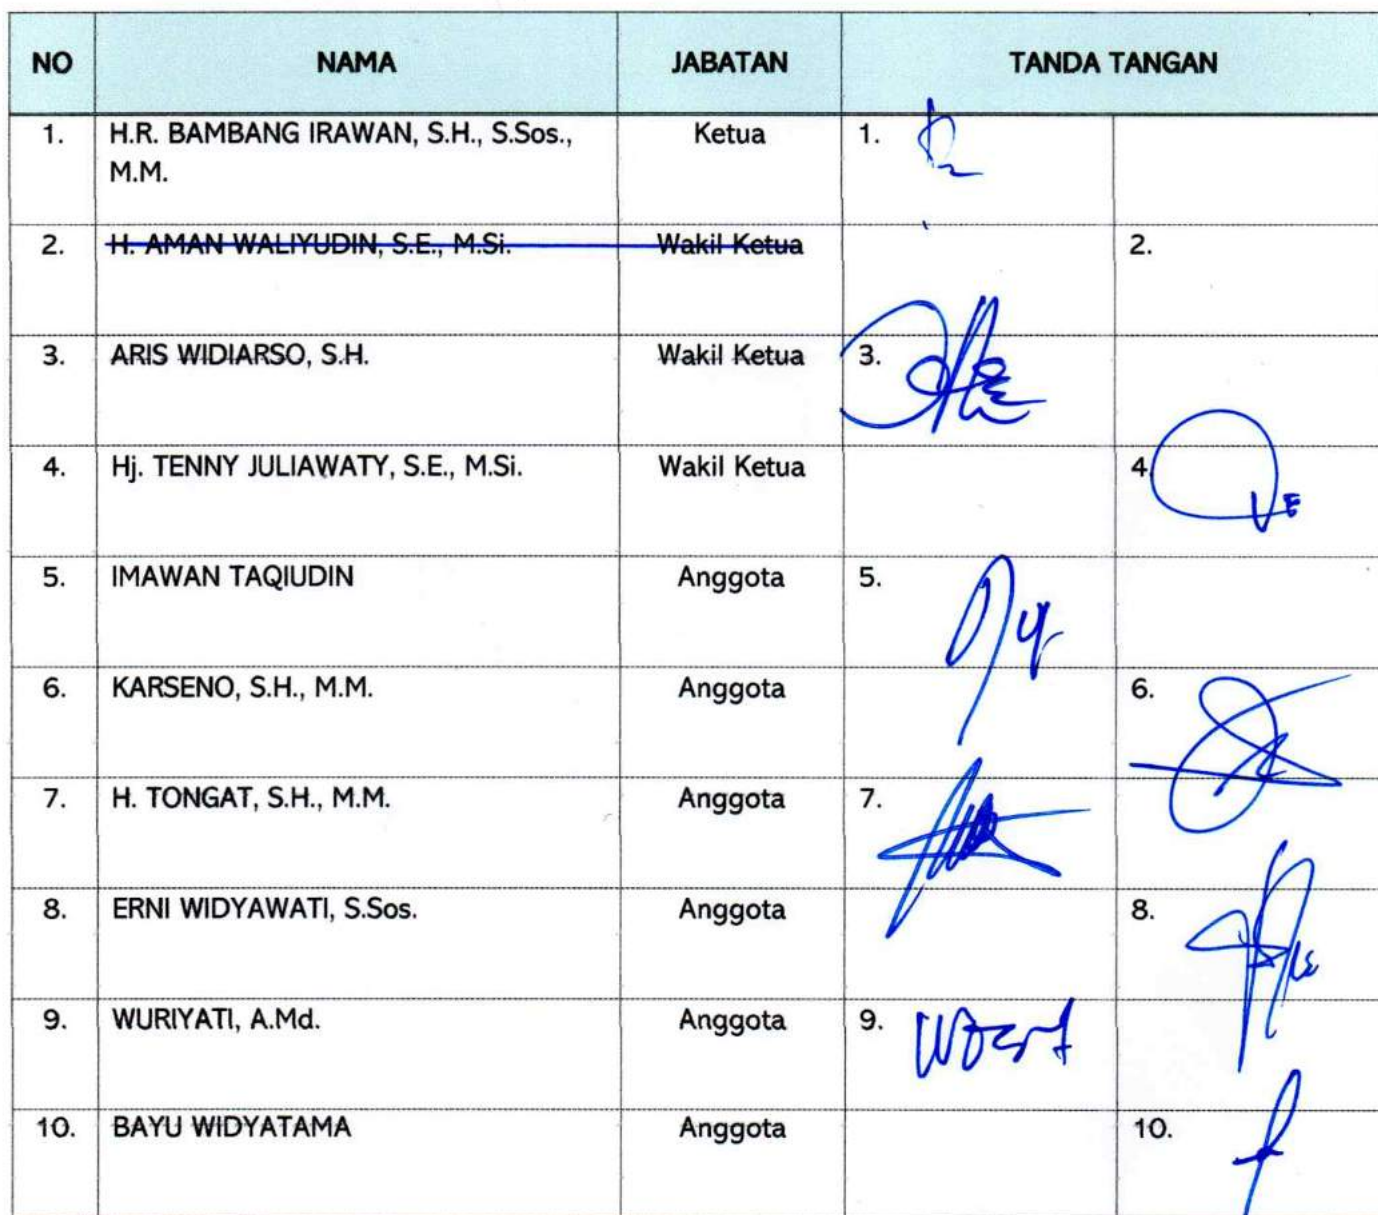 NO NAMA JABATAN TANDA TANGAN
1. H.R. BAMBANG IRAWAN, S.H., S.Sos., Ketua 1.
M.M.
2. H. AMAN WALIYUDIN, S.E., M.Si. Wakil Ketua 2.
3. ARIS WIDIARSO, S.H. Wakil Ketua 3.
4. Hj. TENNY JULIAWATY, S.E., M.Si. Wakil Ketua 4.
5. IMAWAN TAQIUDIN Anggota 5.
6. KARSENO, S.H., M.M. Anggota 6.
7. H. TONGAT, S.H., M.M. Anggota 7.
8. ERNI WIDYAWATI, S.Sos. Anggota 8.
9. WURIYATI, A.Md. Anggota 9.
10. BAYU WIDYATAMA Anggota 10.